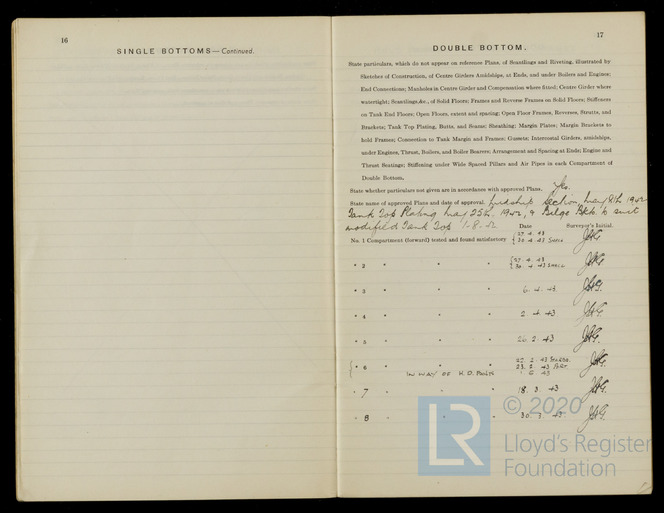 16
SINGLE BOTTOMS—Continued.
17
DOUBLE BOTTOM.
State particulars, which do not appear on reference Plans, of Scantlings and Riveting, illustrated by
Sketches of Construction, of Centre Girders Amidships, at Ends, and under Boilers and Engines;
End Connections; Manholes in Centre Girder and Compensation where fitted; Centre Girder where
watertight; Scantlings,&c., of Solid Floors; Frames and Reverse Frames on Solid Floors; Stiffeners
on Tank End Floors; Open Floors, extent and spacing; Open Floor Frames, Reverses, Struts, and
Brackets; Tank Top Plating, Butts, and Seams; Sheathing; Margin Plates; Margin Brackets to
hold Frames; Connection to Tank Margin and Frames; Gussets; Intercostal Girders, amidships,
under Engines, Thrust, Boilers, and Boiler Bearers; Arrangement and Spacing at Ends; Engine and
Thrust Seatings; Stiffening under Wide Spared Pillars and Air Pipes in each Compartment of
Double Bottom.
State whether particulars not given are in accordance with approved Plans. Yes.
State name of approved Plans and date of approval. Midship Section, May 8th 1942
Tank Top Plating May 25th. 1942, & Bilge Bkts. to suit
modified Tank Top 1-8.42
Date Surveyor's Initial.
No. 1 Compartment (forward) tested and found satisfactory { 27. 4. 43
30. 4. 43
" 2 " " " { 27. 4. 43
30. 4. 43
" 3 " " " 6. 4. 43.
" 4 " " " 2. 4. 43
" 5 " " " 26. 2. 43
{ " 6 " " " 25. 2. 43 Starbd.
23. 2. 43 Port
IN WAY OF H.O. 43
" 7 " " " 18. 3. 43
" 8 " " " 30. 3. 43.
LR © 2020
Lloyd's Register
Foundation